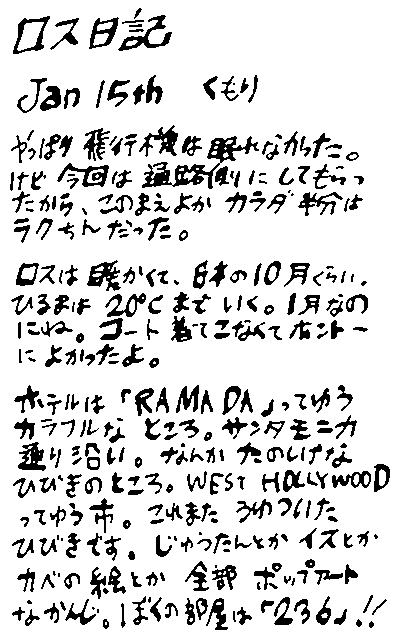 ロス日記
Jan 15th くもり
やっぱり飛行機は眠れなかった。
けど今回は通路側にしてもらっ
たから、このまえよかカラダ半分は
ラクちんだった。
ロスは暖かくて、日本の10月くらい。
ひるまは20℃までいく。1月なの
にね。コート着てこなくてホント一
によかったよ。
ホテルは「RAMADA」ってゆう
カラフルなところ。サンタモニカ
通り沿い。なんかたのしげな
ひびきのところ。WEST HOLLYWOOD
ってゆう市。これまたうわついた
ひびきです。じゅうたんとかイスとか
カベの絵とか全部ポップアート
なかんじ。ぼくの部屋は「236」!!